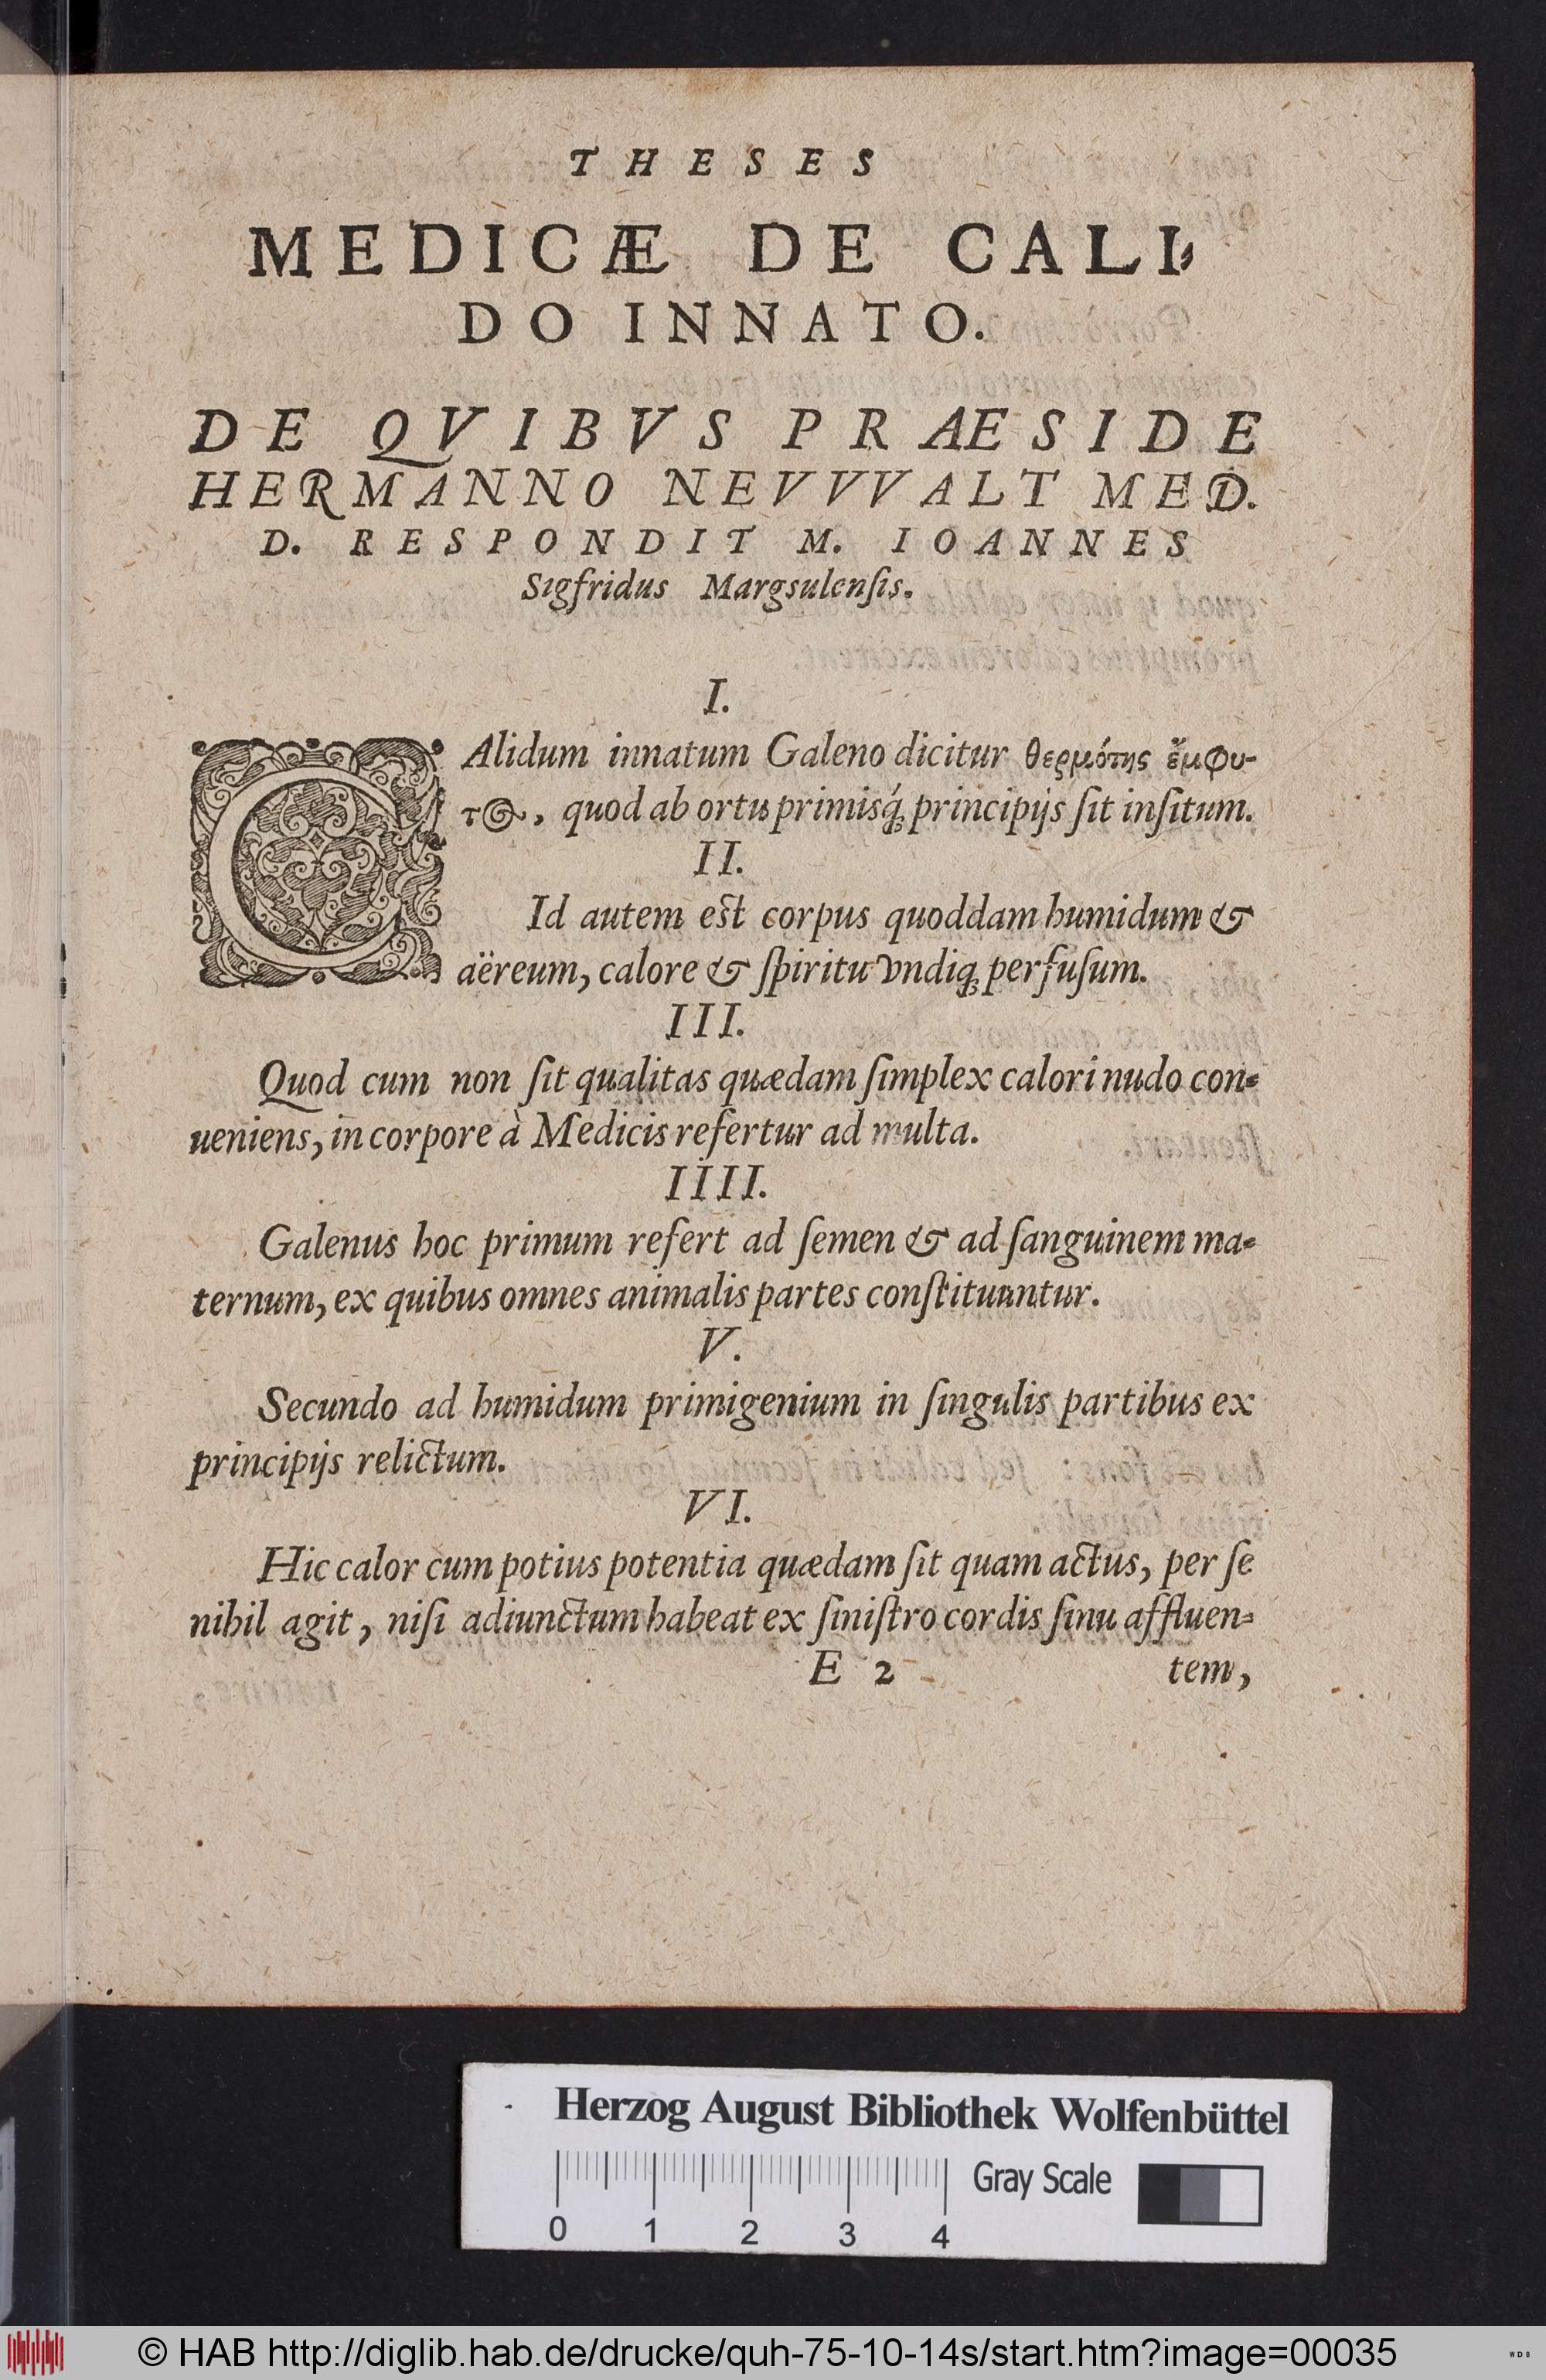 THESES
MEDICÆ DE CALI-
DO INNATO.
DE QVIBVS PRAESIDE
HERMANNO NEVVVALT MED.
D. RESPONDIT M. IOANNES
Sigfridus Margsulenſis.
I.
CAlidum innatum Galeno dicitur θερμότης ἔμφυ-
τος, quod ab ortu primisq́; principijs ſit inſitum.
II.
Id autem est corpus quoddam humidum &
aëreum, calore & ſpiritu vndiq; perfuſum.
III.
Quod cum non ſit qualitas quædam ſimplex calori nudo con-
ueniens, in corpore à Medicis refertur ad multa.
IIII.
Galenus hoc primum refert ad ſemen & ad ſanguinem ma-
ternum, ex quibus omnes animalis partes conſtituuntur.
V.
Secundo ad humidum primigenium in ſingulis partibus ex
principijs relictum.
VI.
Hic calor cum potius potentia quædam ſit quam actus, per ſe
nihil agit, niſi adiunctum habeat ex ſiniſtro cordis ſinu affluen-
E 2 tem,
Herzog August Bibliothek Wolfenbüttel
Gray Scale
0 1 2 3 4
© HAB http://diglib.hab.de/drucke/quh-75-10-14s/start.htm?image=00035
WDB